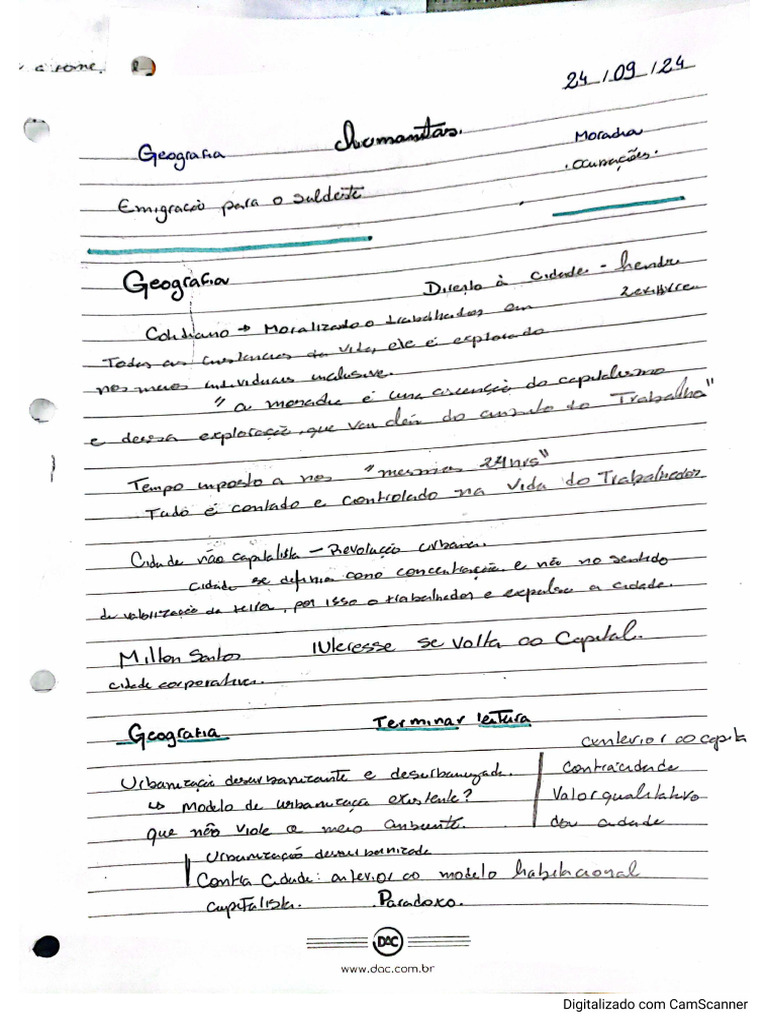 a some,
24/09/24
Geografia humanitas. Moradia
. ocupações.
Emigração para o suldeste
Geografia Direito à cidade - hendri
Cotidiano → Moralizado o trabalhados em
Todas as instancias da vida, ele é explorado
nos meios individuais inclusive.
"a moradia é uma ascenção do capitalismo
e dessa exploração, que vai além do âmbito do Trabalho"
Tempo imposto a nos "mesmas 24hrs"
Tudo é contado e controlado na vida do Trabalhador
Cidade não capitalista - Revolução urbana.
cidade se definia como concentração e não no sentido
de valorização da terra, por isso o trabalhador e expulso a cidade.
Milton Santos Interesse se volta ao Capital.
cidade corporativa.
Geografia Terminar leitura
anterior ao capita
Urbanização desurbanizante e desurbanizada. contracidade
↳ Modelo de urbanização existente? Valor qualitativo
que não viole o meio ambiente. dou cidade
Urbanização desurbanizade
Contra Cidade: anterior ao modelo habitacional
capitalista. Paradoxo.
DAC
www.dac.com.br
Digitalizado com CamScanner